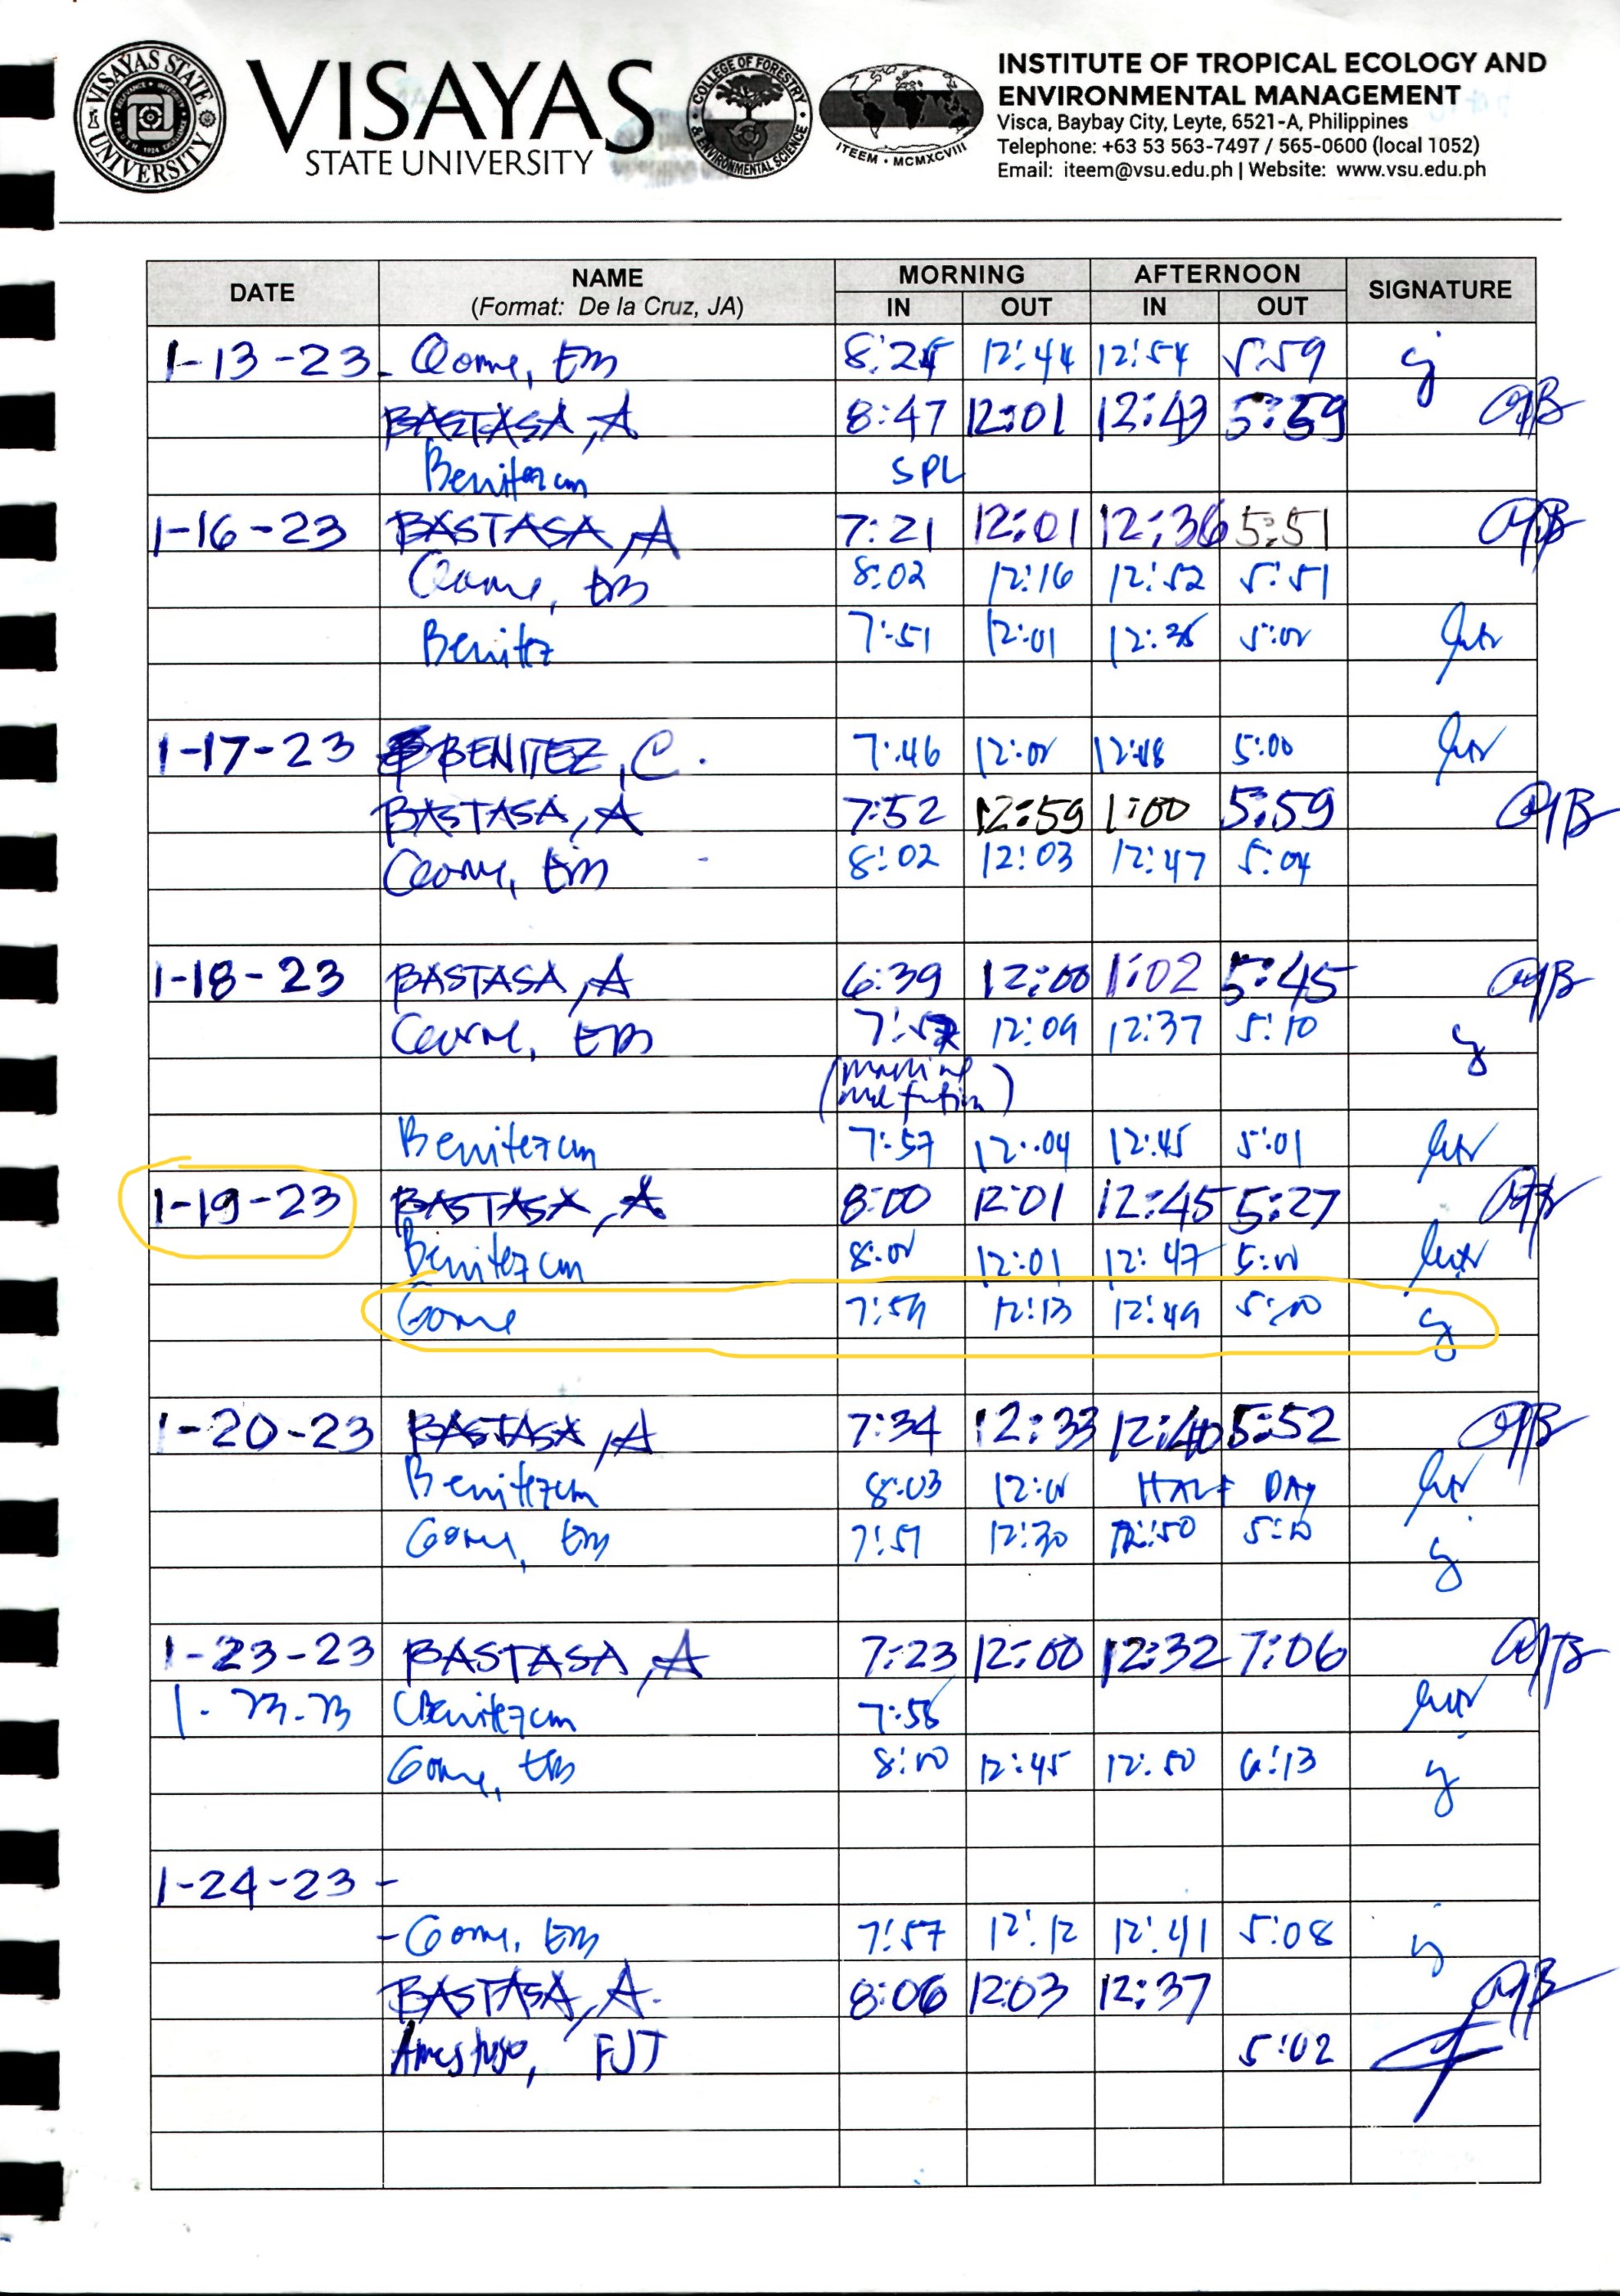 VISAYAS STATE UNIVERSITY
VISAYAS
STATE UNIVERSITY
COLLEGE OF FORESTRY & ENVIRONMENTAL SCIENCE
ITEEM • MCMXCVIII
INSTITUTE OF TROPICAL ECOLOGY AND
ENVIRONMENTAL MANAGEMENT
Visca, Baybay City, Leyte, 6521-A, Philippines
Telephone: +63 53 563-7497 / 565-0600 (local 1052)
Email: iteem@vsu.edu.ph | Website: www.vsu.edu.ph
DATE NAME (Format: De la Cruz, JA) MORNING AFTERNOON SIGNATURE
IN OUT IN OUT
1-13-23 EM 12:44 12:54 5:59
BASTASA, A 8:47 12:01 12:43 5:59
Benitez cm SPL
1-16-23 BASTASA, A 7:21 12:01 12:36 5:51
EM 8:02 12:16 12:52 5:51
Benitez 7:51 12:01 5:01
1-17-23 BENITEZ, C. 7:46 12:01 12:48 5:00
BASTASA, A 7:52 12:59 1:00 5:59
EM 8:02 12:03 12:47 5:04
1-18-23 BASTASA, A 6:39 12:00 1:02 5:45
EM 12:09 12:37 5:10
Benitez cm 7:57 12:04 12:45 5:01
1-19-23 BASTASA, A 8:00 12:01 12:45 5:27
Benitez cm 12:01 12:47
7:59 12:13 12:49 5:10
1-20-23 BASTASA, A 7:34 12:33 12:40 5:52
Benitez cm 8:03 HALF DAY
EM 12:30 12:50 5:10
1-23-23 BASTASA, A 7:23 12:00 12:32 7:06
1-23-23 Benitez cm
EM 8:10 12:45 12:50 6:13
1-24-23 -
EM 7:57 12:12 12:41 5:08
BASTASA, A. 8:06 1203 12:37
FJT 5:02